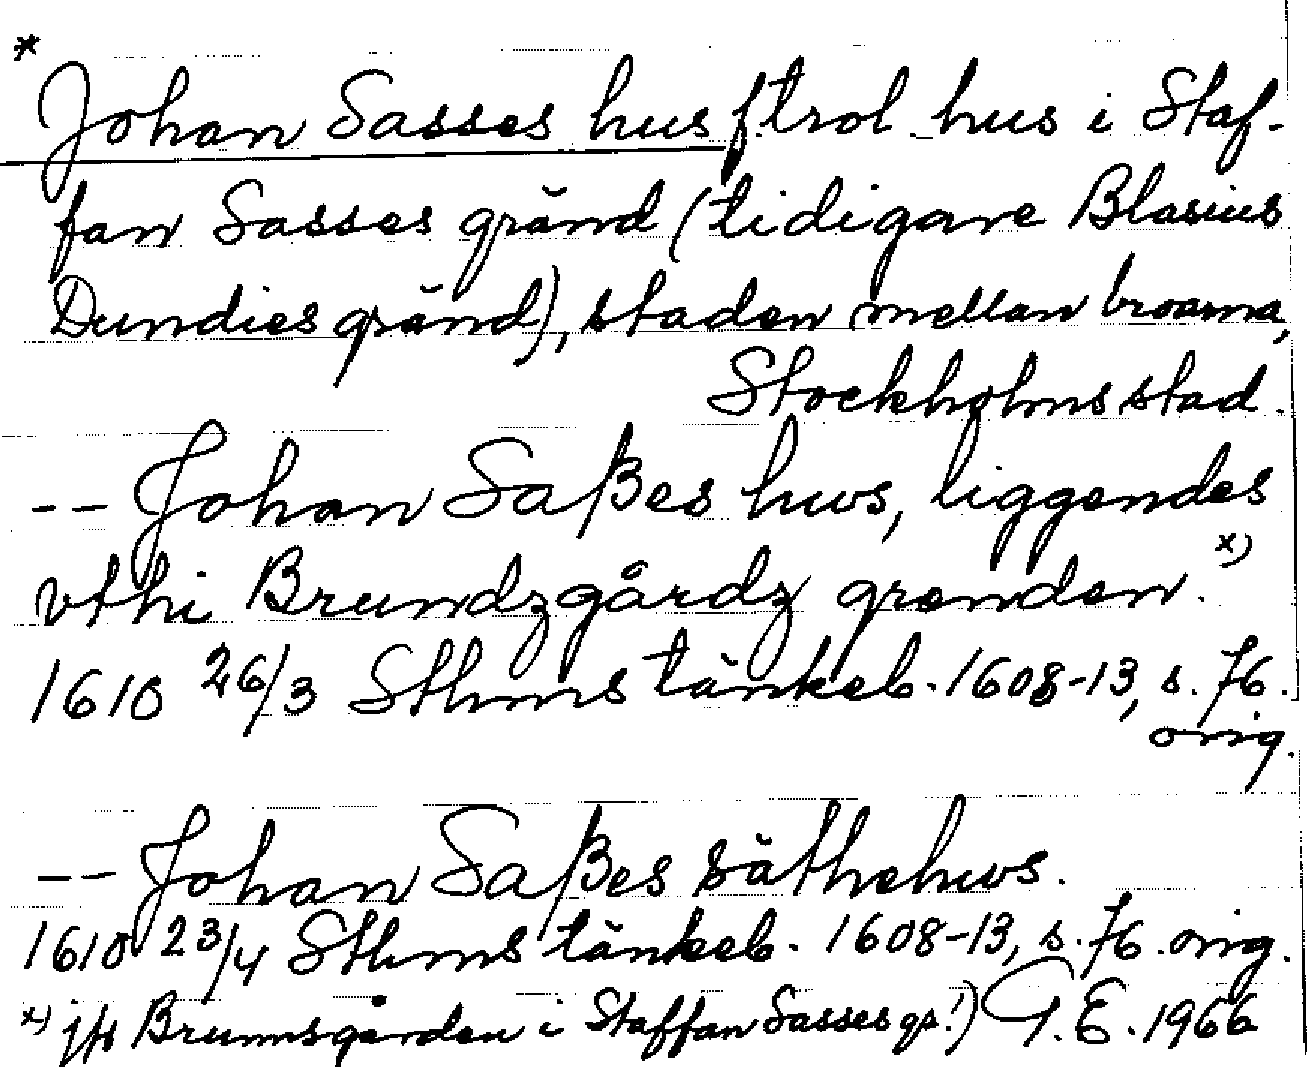 *
Johan Sasses hus f. trol. hus i Staf-
fan Sasses gränd (tidigare Blasius
Dundies gränd), staden mellan broarna,
Stockholms stad.
-- Johan Saßes hws, liggendes
vthi Brundzgårdz grenden. x)
1610 26/3 Sthms tänkeb. 1608-13, s. 76.
orig.
-- Johan Saßes säthehws.
1610 23/4 Sthms tänkeb. 1608-13, s. 76. orig.
x) jfr Brunnsgården i Staffan Sasses gr.!) G.E. 1966